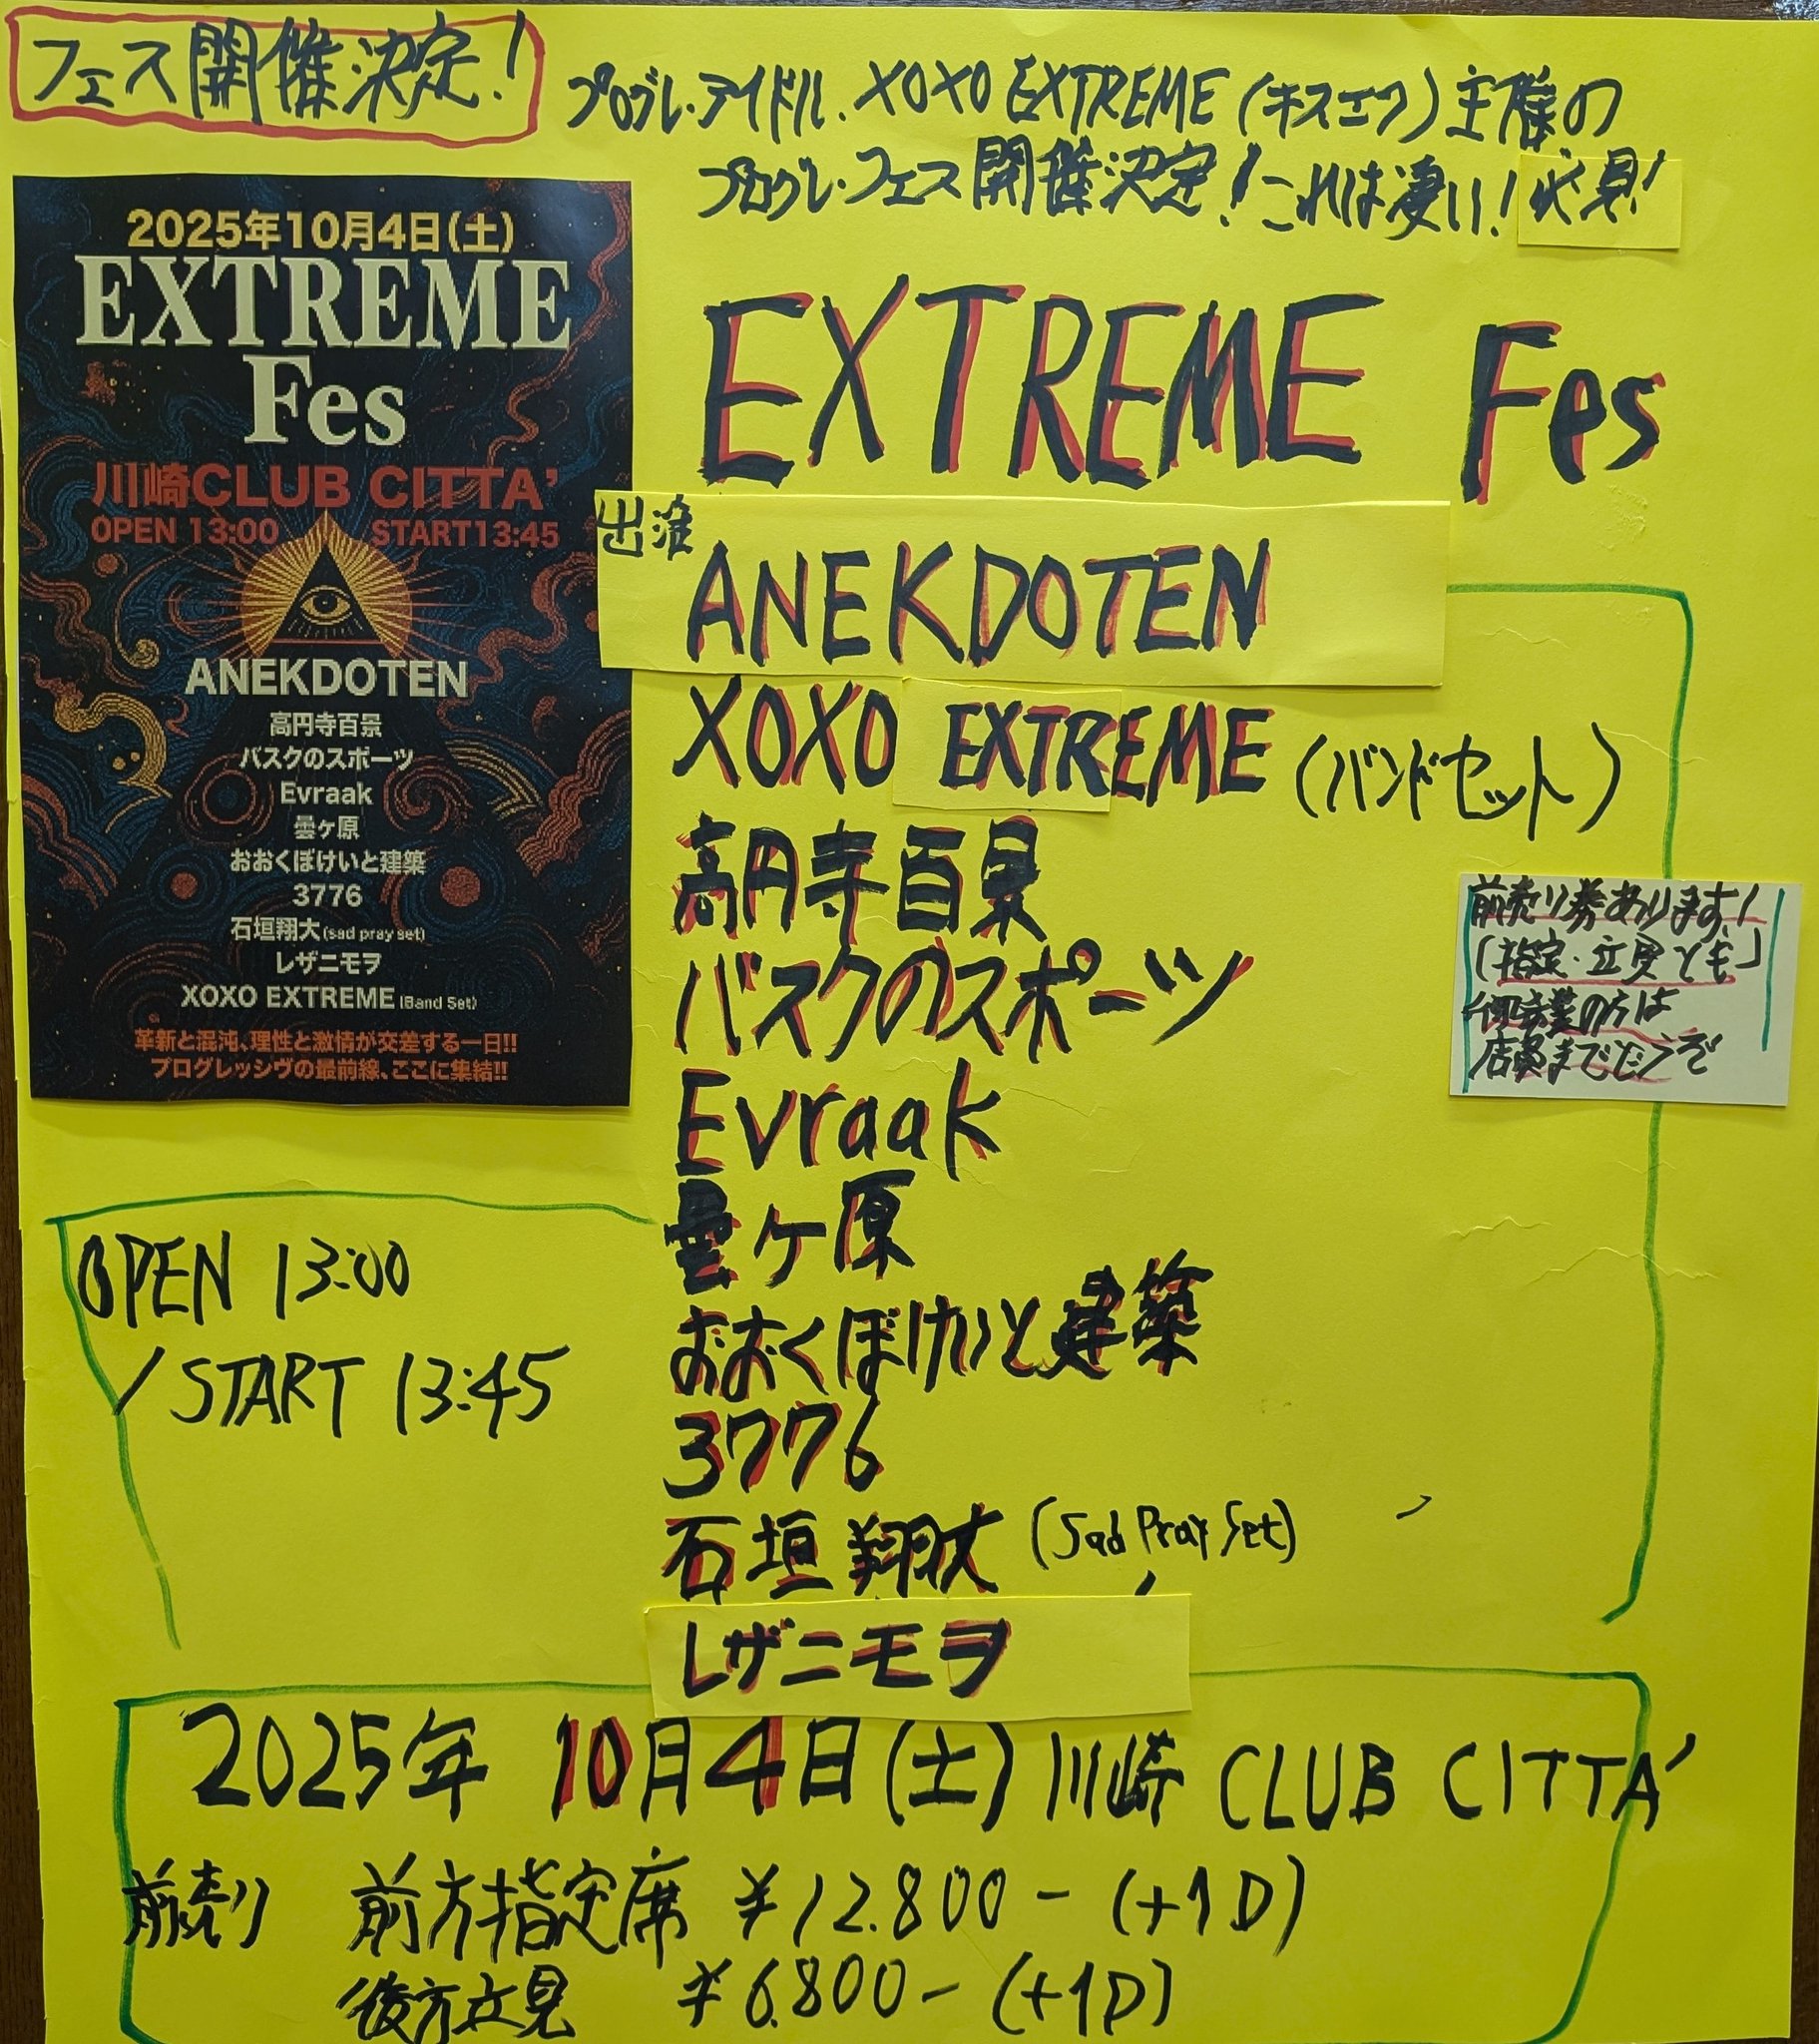 フェス開催決定!
プログレ・アイドル.XOXO EXTREME(キスエク)主催の
プログレ・フェス開催決定!これは凄い!必見!
2025年10月4日(土)
EXTREME
Fes
川崎CLUB CITTA'
OPEN 13:00 START13:45
ANEKDOTEN
高円寺百景
バスクのスポーツ
Evraak
曇ヶ原
おおくぼけいと建築
3776
石垣翔大(sad pray set)
レザニモヲ
XOXO EXTREME(Band Set)
革新と混沌、理性と激情が交差する一日!!
プログレッシヴの最前線、ここに集結!!
EXTREME Fes
出演
ANEKDOTEN
XOXO EXTREME(バンドセット)
高円寺百景
バスクのスポーツ
Evraak
曇ヶ原
おおくぼけいと建築
3776
石垣翔大(Sad Pray Set)
レザニモヲ
前売り券あります!
(指定・立見とも)
御入用の方は
店員までどうぞ
OPEN 13:00
/START 13:45
2025年10月4日(土)川崎 CLUB CITTA'
前売り 前方指定席 ¥12.800-(+1D)
後方立見 ¥6.800-(+1D)